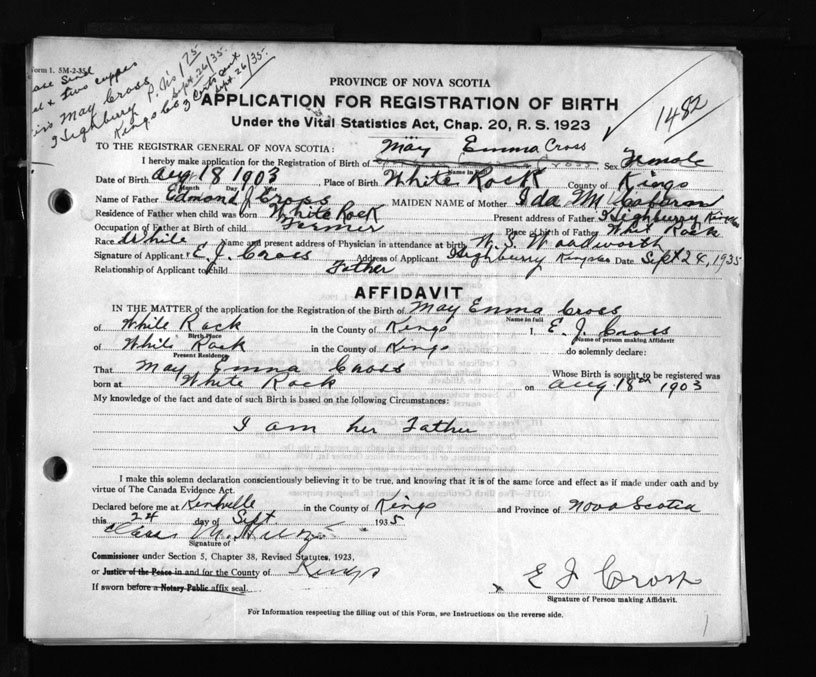 Form 1. 5M-2-35
May Cross
Highbury P. No 1 75
Kings Co
Sept. 26/35
Sept 26/35
PROVINCE OF NOVA SCOTIA
APPLICATION FOR REGISTRATION OF BIRTH
Under the Vital Statistics Act, Chap. 20, R. S. 1923
1482
TO THE REGISTRAR GENERAL OF NOVA SCOTIA: May Emma Cross
I hereby make application for the Registration of Birth of Name in full Sex Female
Date of Birth Aug 18 1903 Month Day Year, Place of Birth White Rock County of Kings
Name of Father Edmond J. Cross MAIDEN NAME of Mother Ida M
Residence of Father when child was born White Rock Present address of Father Highbury Kings Co
Occupation of Father at Birth of child Farmer Place of Birth of Father Whit Rock
Race White Name and present address of Physician in attendance at birth W. S. Woodworth
Signature of Applicant E. J. Cross Address of Applicant Highbury Kings Co Date Sept 24, 1935
Relationship of Applicant to child Father
AFFIDAVIT
IN THE MATTER of the application for the Registration of the Birth of May Emma Cross
Name in full
of White Rock in the County of Kings I, E. J. Cross
Birth Place Name of person making Affidavit
of White Rock in the County of Kings do solemnly declare:
Present Residence
That May Emma Cross Whose Birth is sought to be registered was
born at White Rock on Aug 18th 1903
My knowledge of the fact and date of such Birth is based on the following Circumstances:
I am her Father
I make this solemn declaration conscientiously believing it to be true, and knowing that it is of the same force and effect as if made under oath and by
virtue of The Canada Evidence Act.
Declared before me at Kentville in the County of Kings and Province of Nova Scotia
this 24 day of Sept 1935
Signature of
Commissioner under Section 5, Chapter 38, Revised Statutes, 1923,
or Justice of the Peace in and for the County of Kings
If sworn before a Notary Public affix seal.
x E J Cross
Signature of Person making Affidavit.
For Information respecting the filling out of this Form, see Instructions on the reverse side.